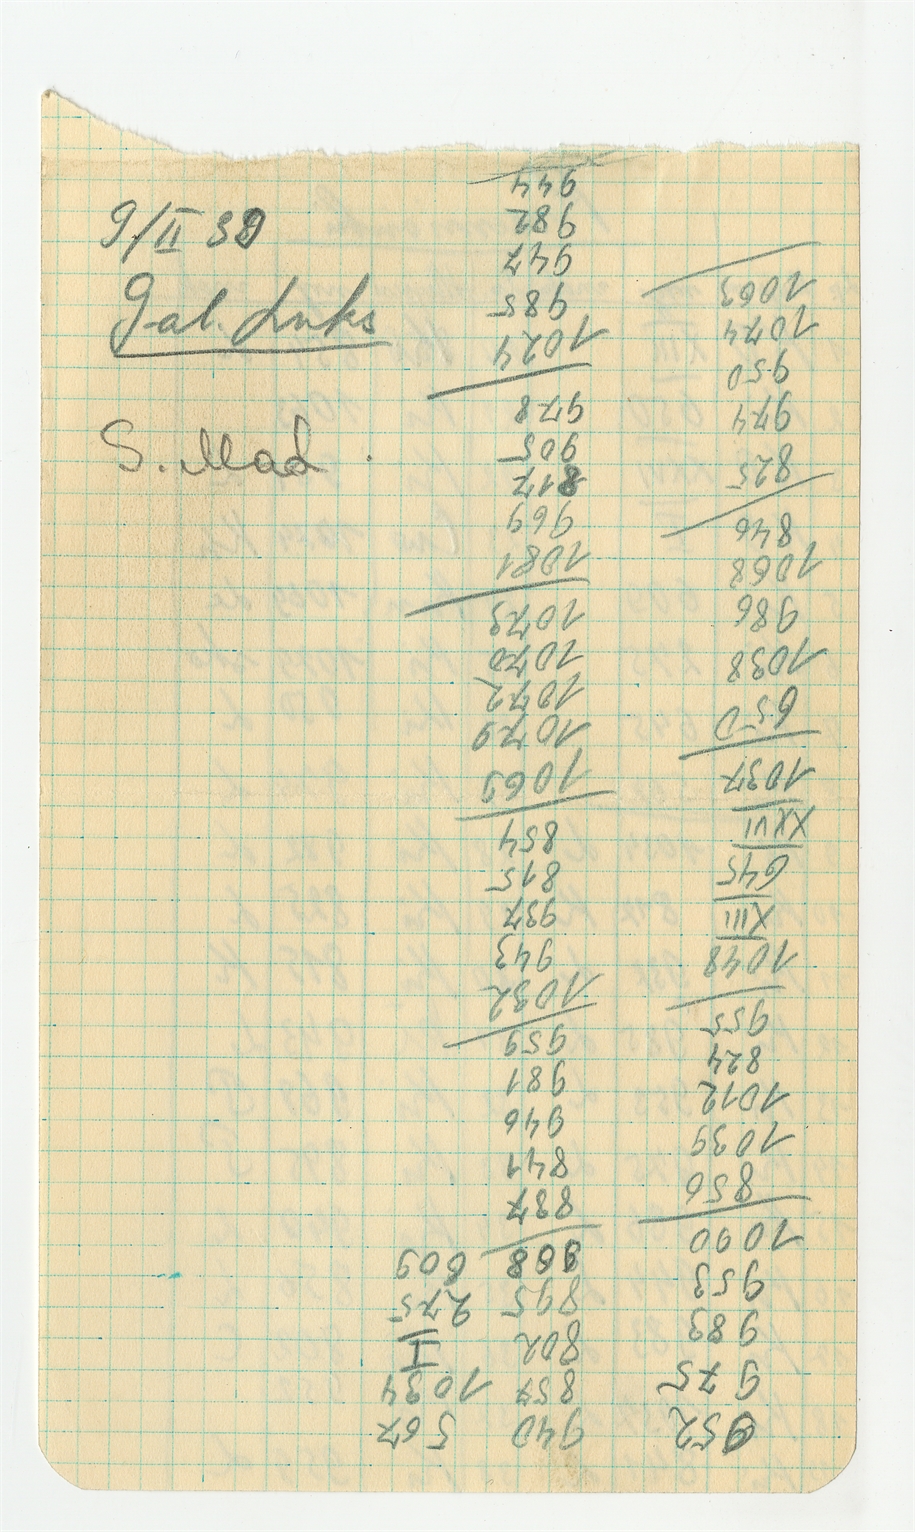 9/II 39
Gal. dnks
S. Mad.
952
975
983
953
1090
856
1039
1012
824
955
1048
XIII
645
XXVI
1037
650
1038
986
1068
846
825
974
950
1074
1063
940
857
802
895
868
837
841
946
981
959
1032
943
937
815
854
1069
1079
1072
1070
1073
1081
969
817
905
978
1024
985
947
982
944
567
1034
I
275
609